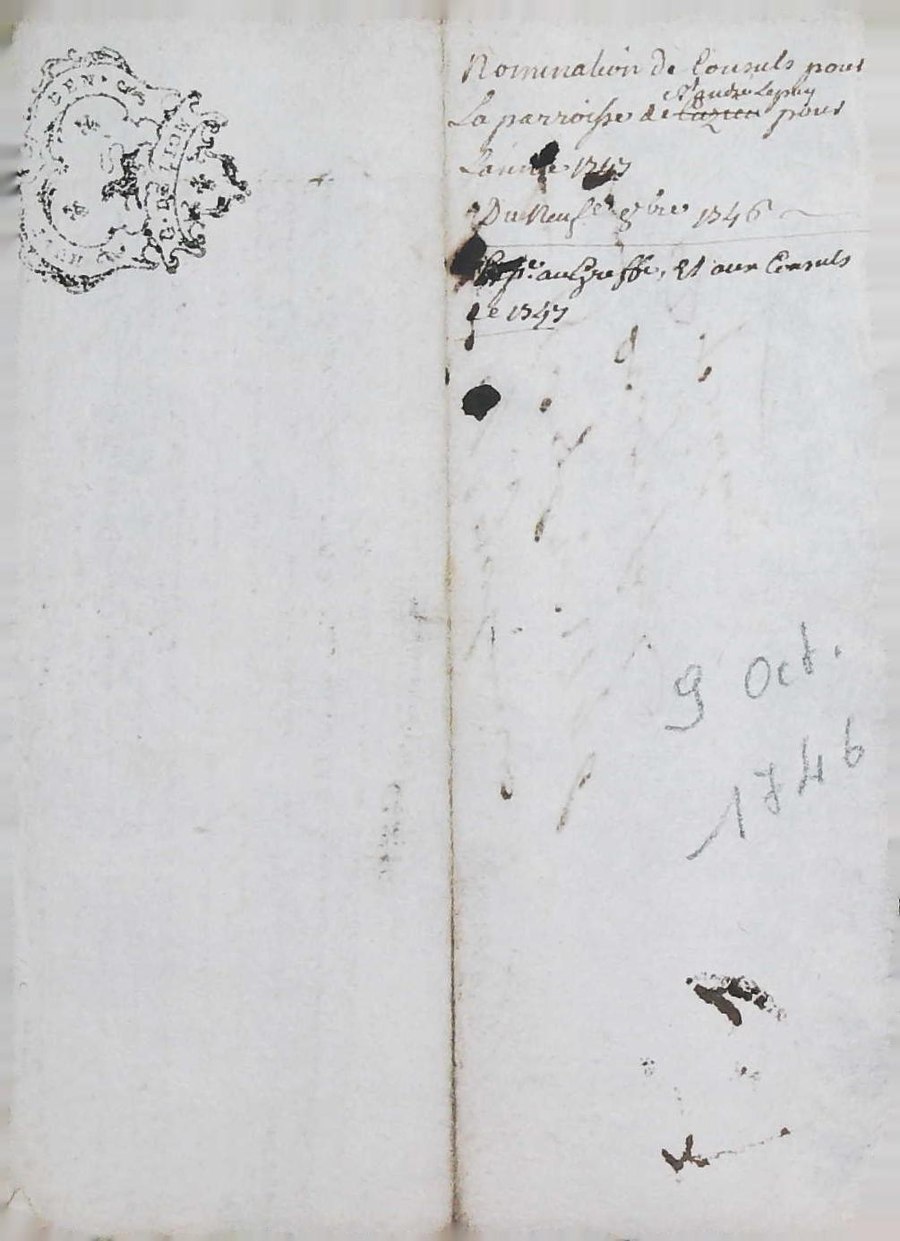 Nomination de Consuls pour
St andre Lepuy
La parroisse de Luzieu pour
L'année 1747
Du Neufe 8bre 1746
au Greffe, Et aux Consuls
de 1747
9 Oct.
1746